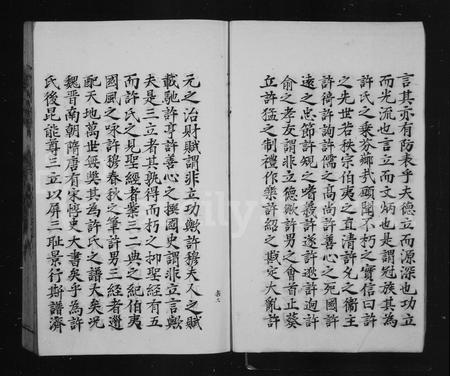 言其亦有防表乎夫德立而源深也功立
而光流也言立而文炳也是謂冠族其為
許氏之乘芬鄉武頋聞不朽之實信曰許
之先世若秩宗伯夷之直清許允之衛主
許荷許詢許儒之高尚許善心之死國許
遠之忠節許規之嗜義許遂許遜許迥許
俞之孝友謂非立德歟許男之會首止葵
丘許猛之制禮作樂許紹之戡定大亂許
元之治財賦謂非立功歟許穆夫人之賦
載馳許亨許善心之撰國史謂非立言歟
夫是三立者其孰得而朽之抑聖經有五
而許氏之見聖經者葉三二典之紀伯夷
國風之咏許穆春秋之筆許男三經者邇
配天地萬世無獘其為許氏之譜大矣况
魏晋南朝隋唐有宋諸史大書矣乎為許
氏後昆能尊三立以屏三耻景行斯譜濟